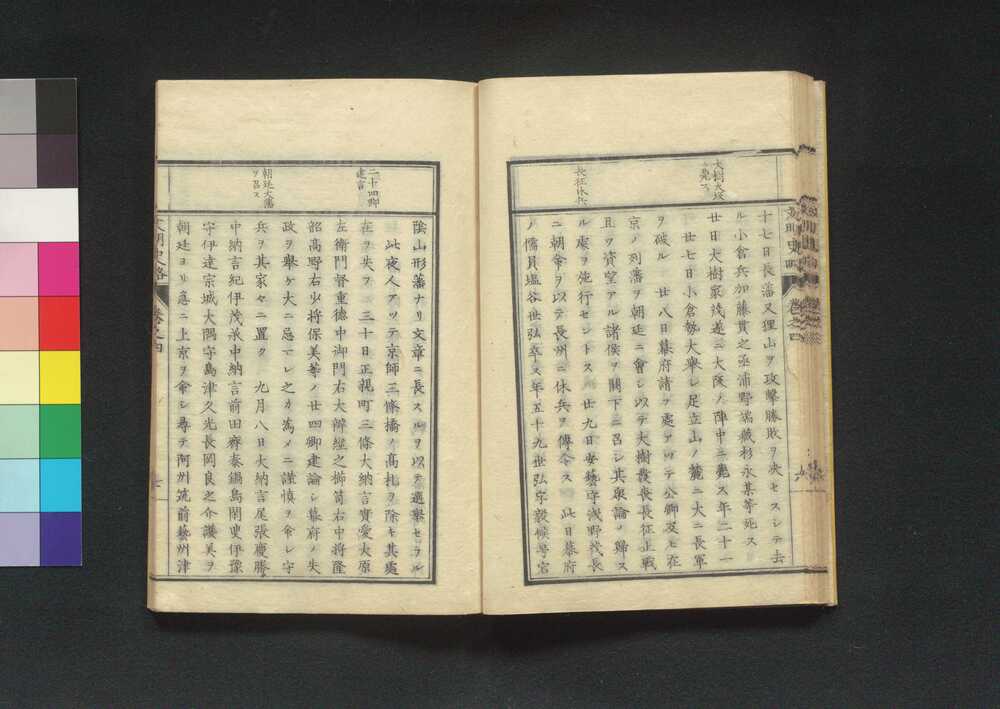 大樹大坂
ニ薨ス
長征休兵
十七日長藩又狸山ヲ攻擊勝敗ヲ決セスシテ去
ル小倉兵加藤貫之丞浦野端藏杉永某等死ス
廿日大樹家茂遂ニ大阪ノ陣中ニ薨ス年二十一
廿七日小倉勢大擧シ足立山ノ麓ニ大ニ長軍
ヲ破ル 廿八日幕府請フ處アツテ公卿及モ在
京ノ列藩ヲ朝廷ニ會シ以テ大樹喪長征止戰
且ツ資望アル諸侯ヲ闕下ニ召シ其衆論ノ歸ス
ル處ヲ施行セントス 廿九日安藝守淺野茂長
ニ朝命ヲ以テ長州ニ休兵ヲ傳令ス 此日幕府
ノ儒員塩谷世弘卒ス年五十九世弘字毅侯号宕
卷之四
二十四卿
建言
朝廷大藩
ヲ召ス
陰山形藩ナリ文章ニ長スルヲ以テ選舉セラル
此夜人アツテ京師三條橋ノ高札ヲ除キ其處
在ヲ失フ 三十日正親町三條大納言實愛大原
左衛門督重德中御門右大辨經之櫛笥右中將隆
韶高野右少將保美等ノ廿四卿建論シ幕府ノ失
政ヲ擧ケ大ニ忌マレ之カ為メニ謹慎ヲ命シ守
兵ヲ其家々ニ置ク 九月八日大納言尾張慶勝
中納言紀伊茂承中納言前田齊泰鍋島閑叟伊豫
守伊達宗城大隅守島津久光長岡良之介護美ヲ
朝廷ヨリ急ニ上京ヲ命シ尋テ阿州筑前藝州津
卷之四